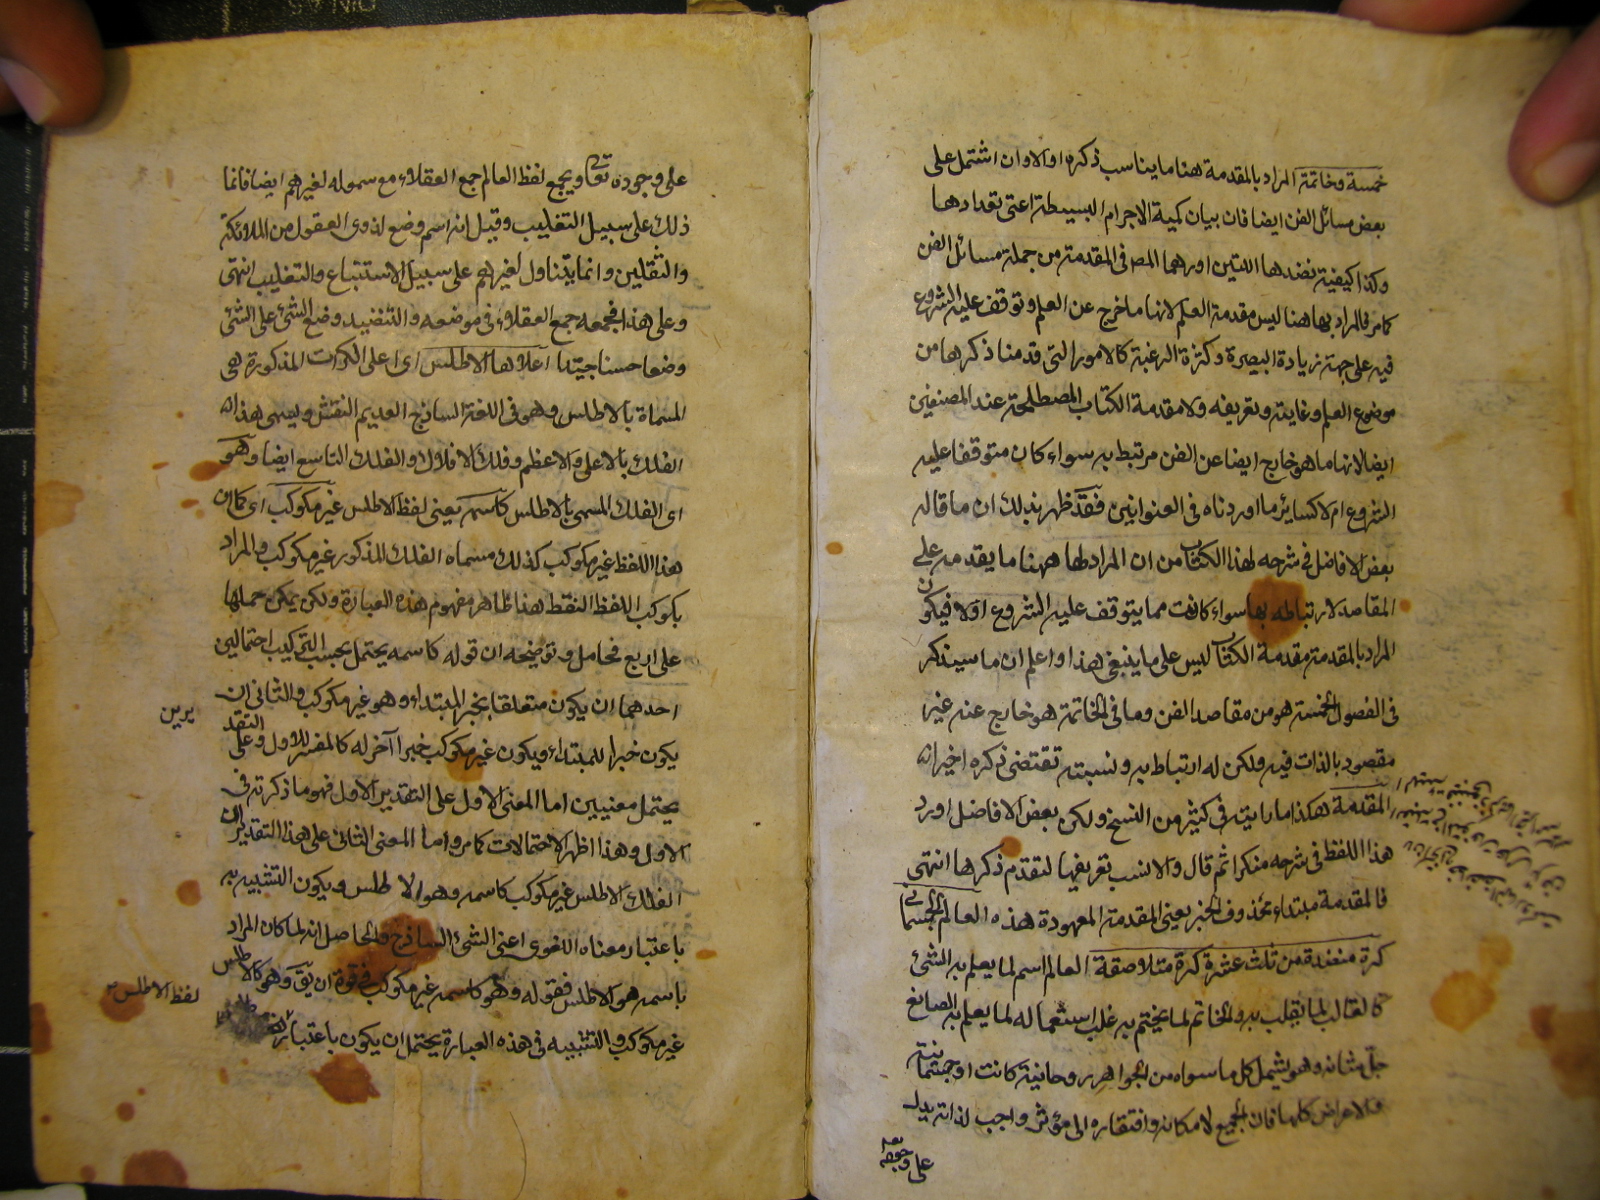 خمسة وخاتمة المراد بالمقدمة هنا ما يناسب ذكره اولا وان اشتمل على
بعض مسائل الفن ايضا فان بيان كمية الاجرام البسيطة اعنى تعدادها
وكذا كيفية نضدها اللتين اوردهما المص فى المقدمة من جملة مسائل الفن
كما مر فالمراد بها هنا ليس مقدمة العلم لانها ما خرج عن العلم وتوقف عليه الشروع
فيه على جهة زيادة البصيرة وكثرة الرغبة كالامور التى قدمنا ذكرها من
موضوع العلم وغايته وتعريفه ولا مقدمة الكتاب المصطلحة عند المصنفين
ايضا لانها ما هو خارج ايضا عن الفن مرتبط به سواء كان متوقفا عليه
الشروع ام لا كسائر ما اوردناه فى العنوانين فقد ظهر بذلك ان ما قاله
بعض الافاضل فى شرحه لهذا الكتاب من ان المراد بها ههنا ما يقدم على
المقاصد لارتباطه بها سواء كانت مما يتوقف عليه الشروع اولا فيكون
المراد بالمقدمة مقدمة الكتاب ليس على ما ينبغى هذا واعلم ان ما سيذكر
فى الفصول الخمسة هو من مقاصد الفن وما فى الخاتمة هو خارج عنه غير
مقصود بالذات فيه ولكن له ارتباط به ونسبته تقتضى ذكره اخيرا
المقدمة هكذا ما رايته فى كثير من النسخ ولكن بعض الافاضل اورد
هذا اللفظ فى شرحه منكرا ثم قال والانسب تعريفها لتقدم ذكرها انتهى
فالمقدمة مبتداء محذوف الخبر يعنى المقدمة المعهودة هذه العالم الجسمانى
كرة منضدة من ثلث عشرة كرة متلاصقة العالم اسم لما يعلم به الشئ
كالقالب لما يقلب به والخاتم لما يختم به غلب استعماله لما يعلم به الصانع
جل شانه وهو يشمل كل ما سواه من الجواهر روحانية كانت او جسمانية
والاعراض كلها فان الجميع لامكانه وافتقاره الى مؤثر واجب لذاته يدل
على وجوده
على وجوده تعالى ويجمع لفظ العالم جمع العقلاء مع شموله لغيرهم ايضا فانما
ذلك على سبيل التغليب وقيل انه اسم وضع لذوى العقول من الملائكة
والثقلين وانما يتناول لغيرهم على سبيل الاستتباع والتغليب انتهى
وعلى هذا فجمعه جمع العقلاء فى موضعه والتنضيد وضع الشئ على الشئ
وضعا حسنا جيدا اعلاها الاطلس اى اعلى الكرات المذكورة هى
المسماة بالاطلس وهو فى اللغة الساذج العديم النقش ويسمى هذا
الفلك بالاعلى والاعظم وفلك الافلاك والفلك التاسع ايضا وهو
اى الفلك المسمى بالاطلس كاسمه يعنى لفظ الاطلس غير مكوكب اى كما ان
هذا اللفظ غير مكوكب كذلك مسماه الفلك المذكور غير مكوكب والمراد
بكوكب اللفظ النقط هنا ظاهر مفهوم هذه العبارة ولكن يمكن حملها
على اربع محامل وتوضيحه ان قوله كاسمه يحتمل بحسب التركيب احتمالين
احدهما ان يكون متعلقا بخبر المبتداء وهو غير مكوكب والثانى ان
يكون خبرا للمبتداء ويكون غير مكوكب خبرا آخر له كالمفسر للاول وعلى التقد
يرين
يحتمل معنيين اما المعنى الاول على التقدير الاول فهو ما ذكرته فى
الاول وهذا اظهر الاحتمالات كما مر واما المعنى الثانى على هذا التقدير ان
الفلك الاطلس غير مكوكب كاسمه وهو الاطلس ويكون التشبيه به
باعتبار معناه اللغوى اعنى الشئ الساذج والحاصل انه لما كان المراد
باسمه هو الاطلس فقوله وهو كاسمه غير مكوكب فى قوة ان يق وهو كالاطلس
غير مكوكب والتشبيه فى هذه العبارة يحتمل ان يكون باعتبار
لفظ الاطلس